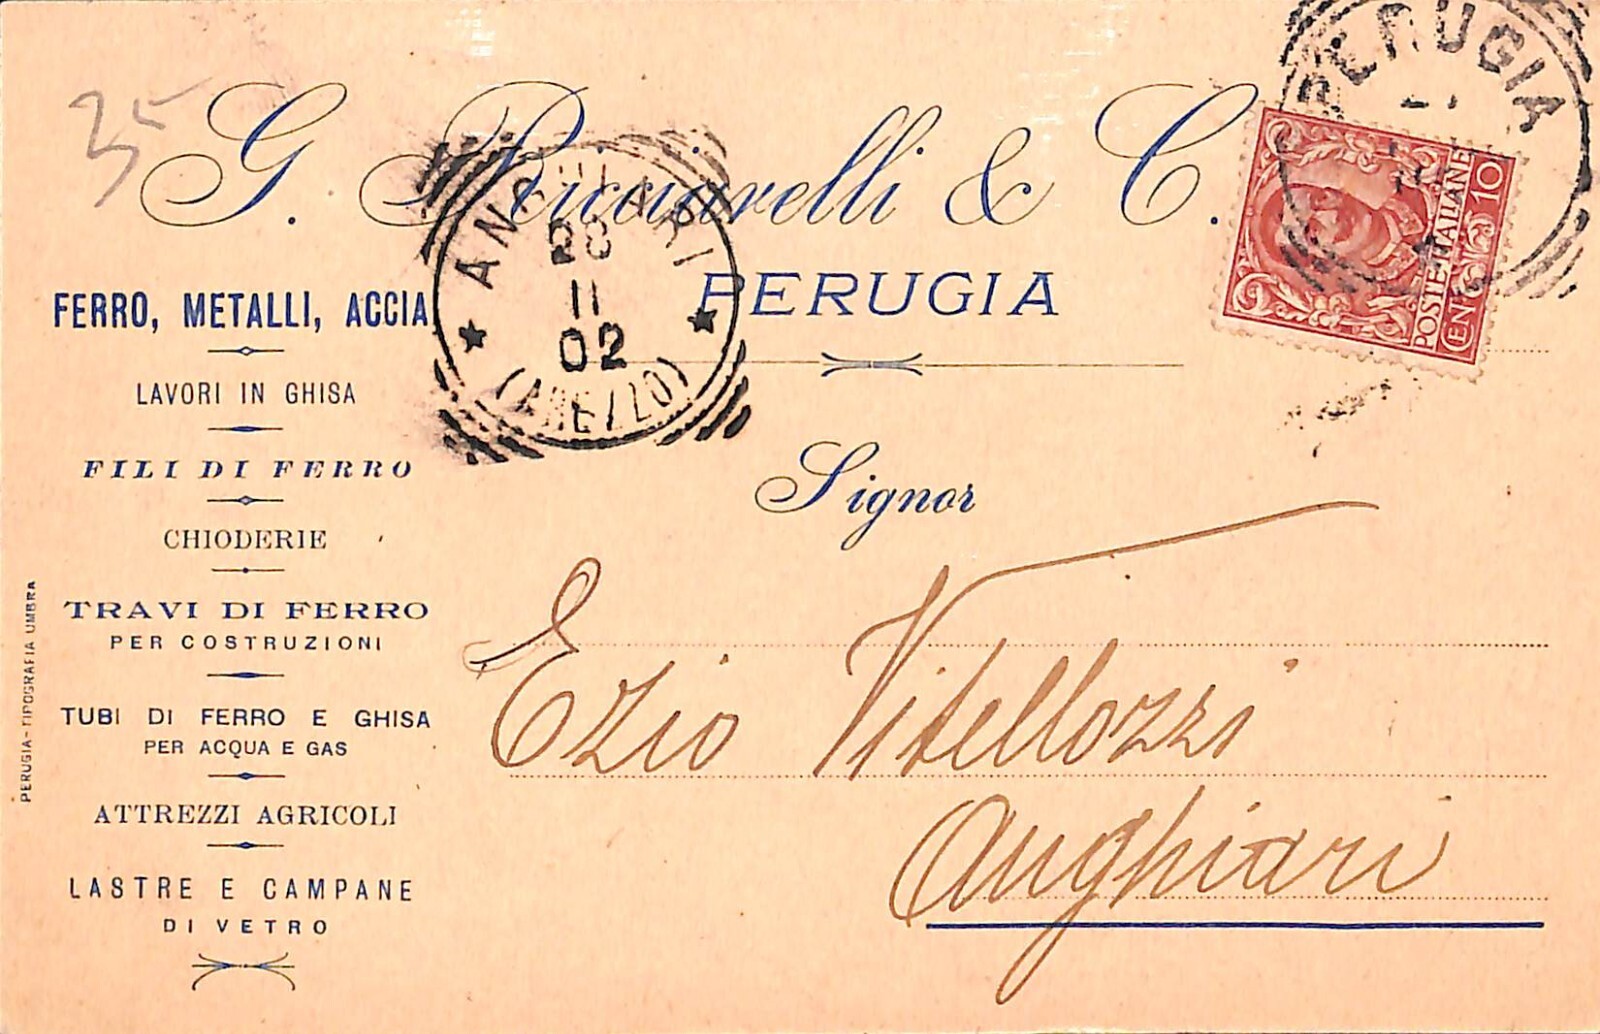 35
G. Ricciarelli & C.
PERUGIA
PERUGIA
POSTE ITALIANE
CENT. 10
ANGHIARI
28
11
02
(AREZZO)
FERRO, METALLI, ACCIA
LAVORI IN GHISA
FILI DI FERRO
CHIODERIE
TRAVI DI FERRO
PER COSTRUZIONI
TUBI DI FERRO E GHISA
PER ACQUA E GAS
ATTREZZI AGRICOLI
LASTRE E CAMPANE
DI VETRO
PERUGIA - TIPOGRAFIA UMBRA
Signor
Ezio Vitellozzi
Anghiari